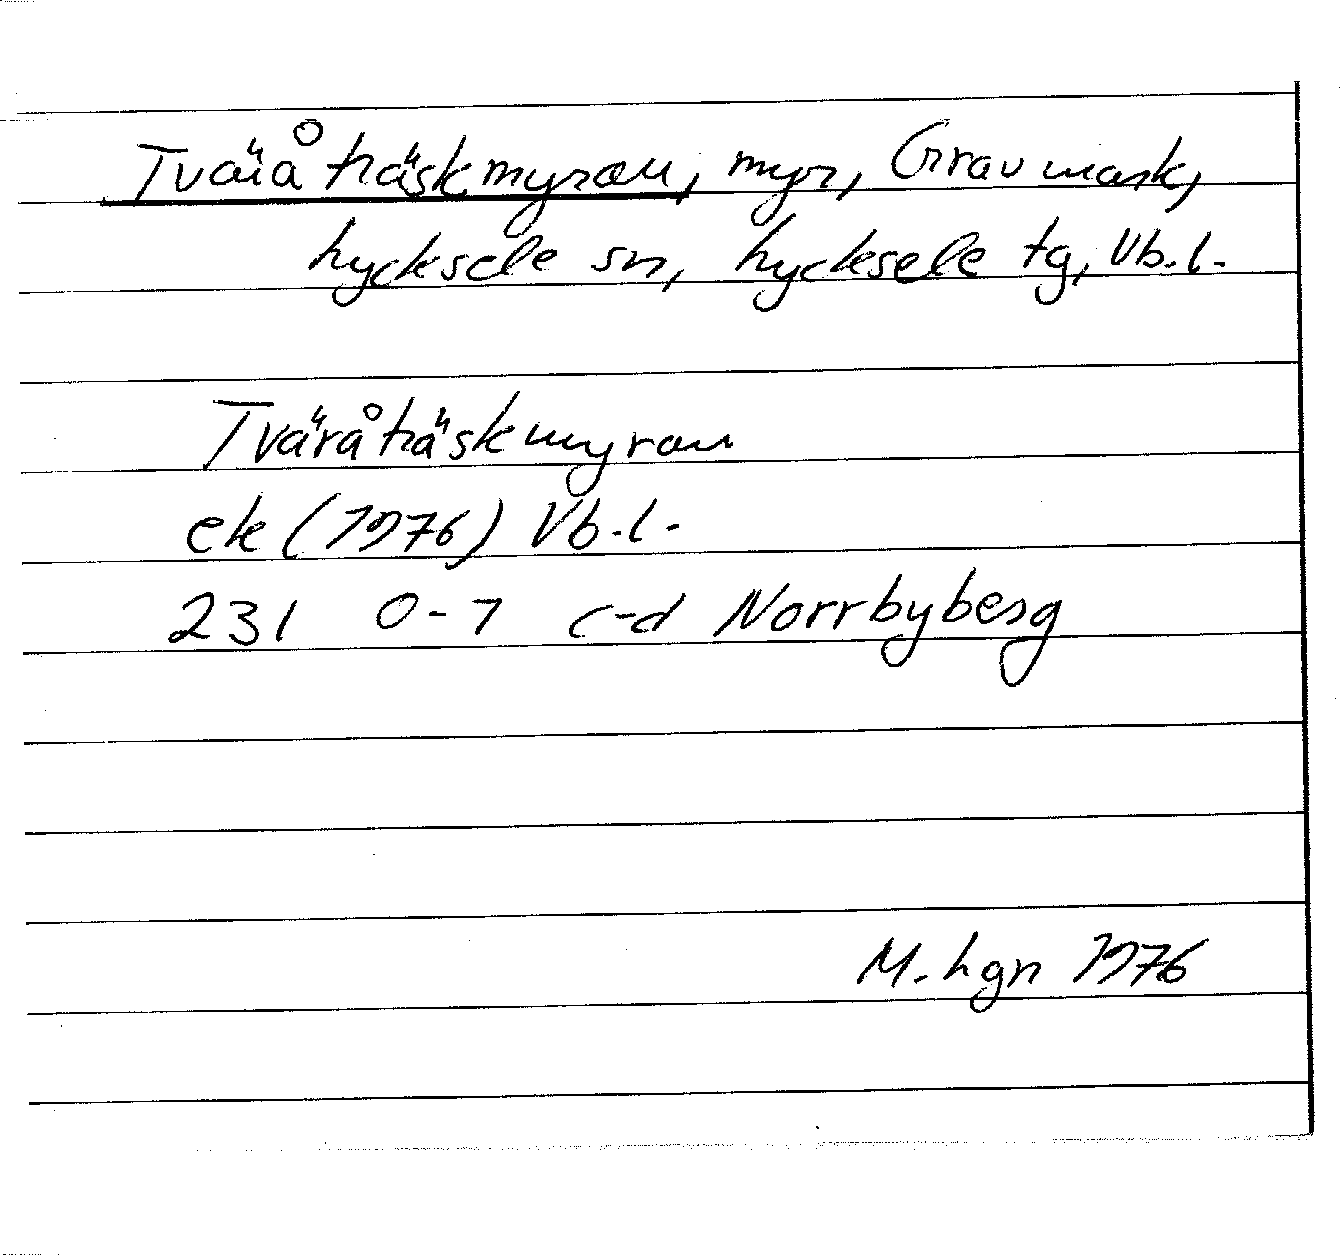 Tväråträskmyran, myr, Gravmark,
Lycksele sn, Lycksele tg, Vb.l.
Tväråträskmyran
ek (1976) Vb.l.
231 0-1 c-d Norrbyberg
M. Lgn 1976